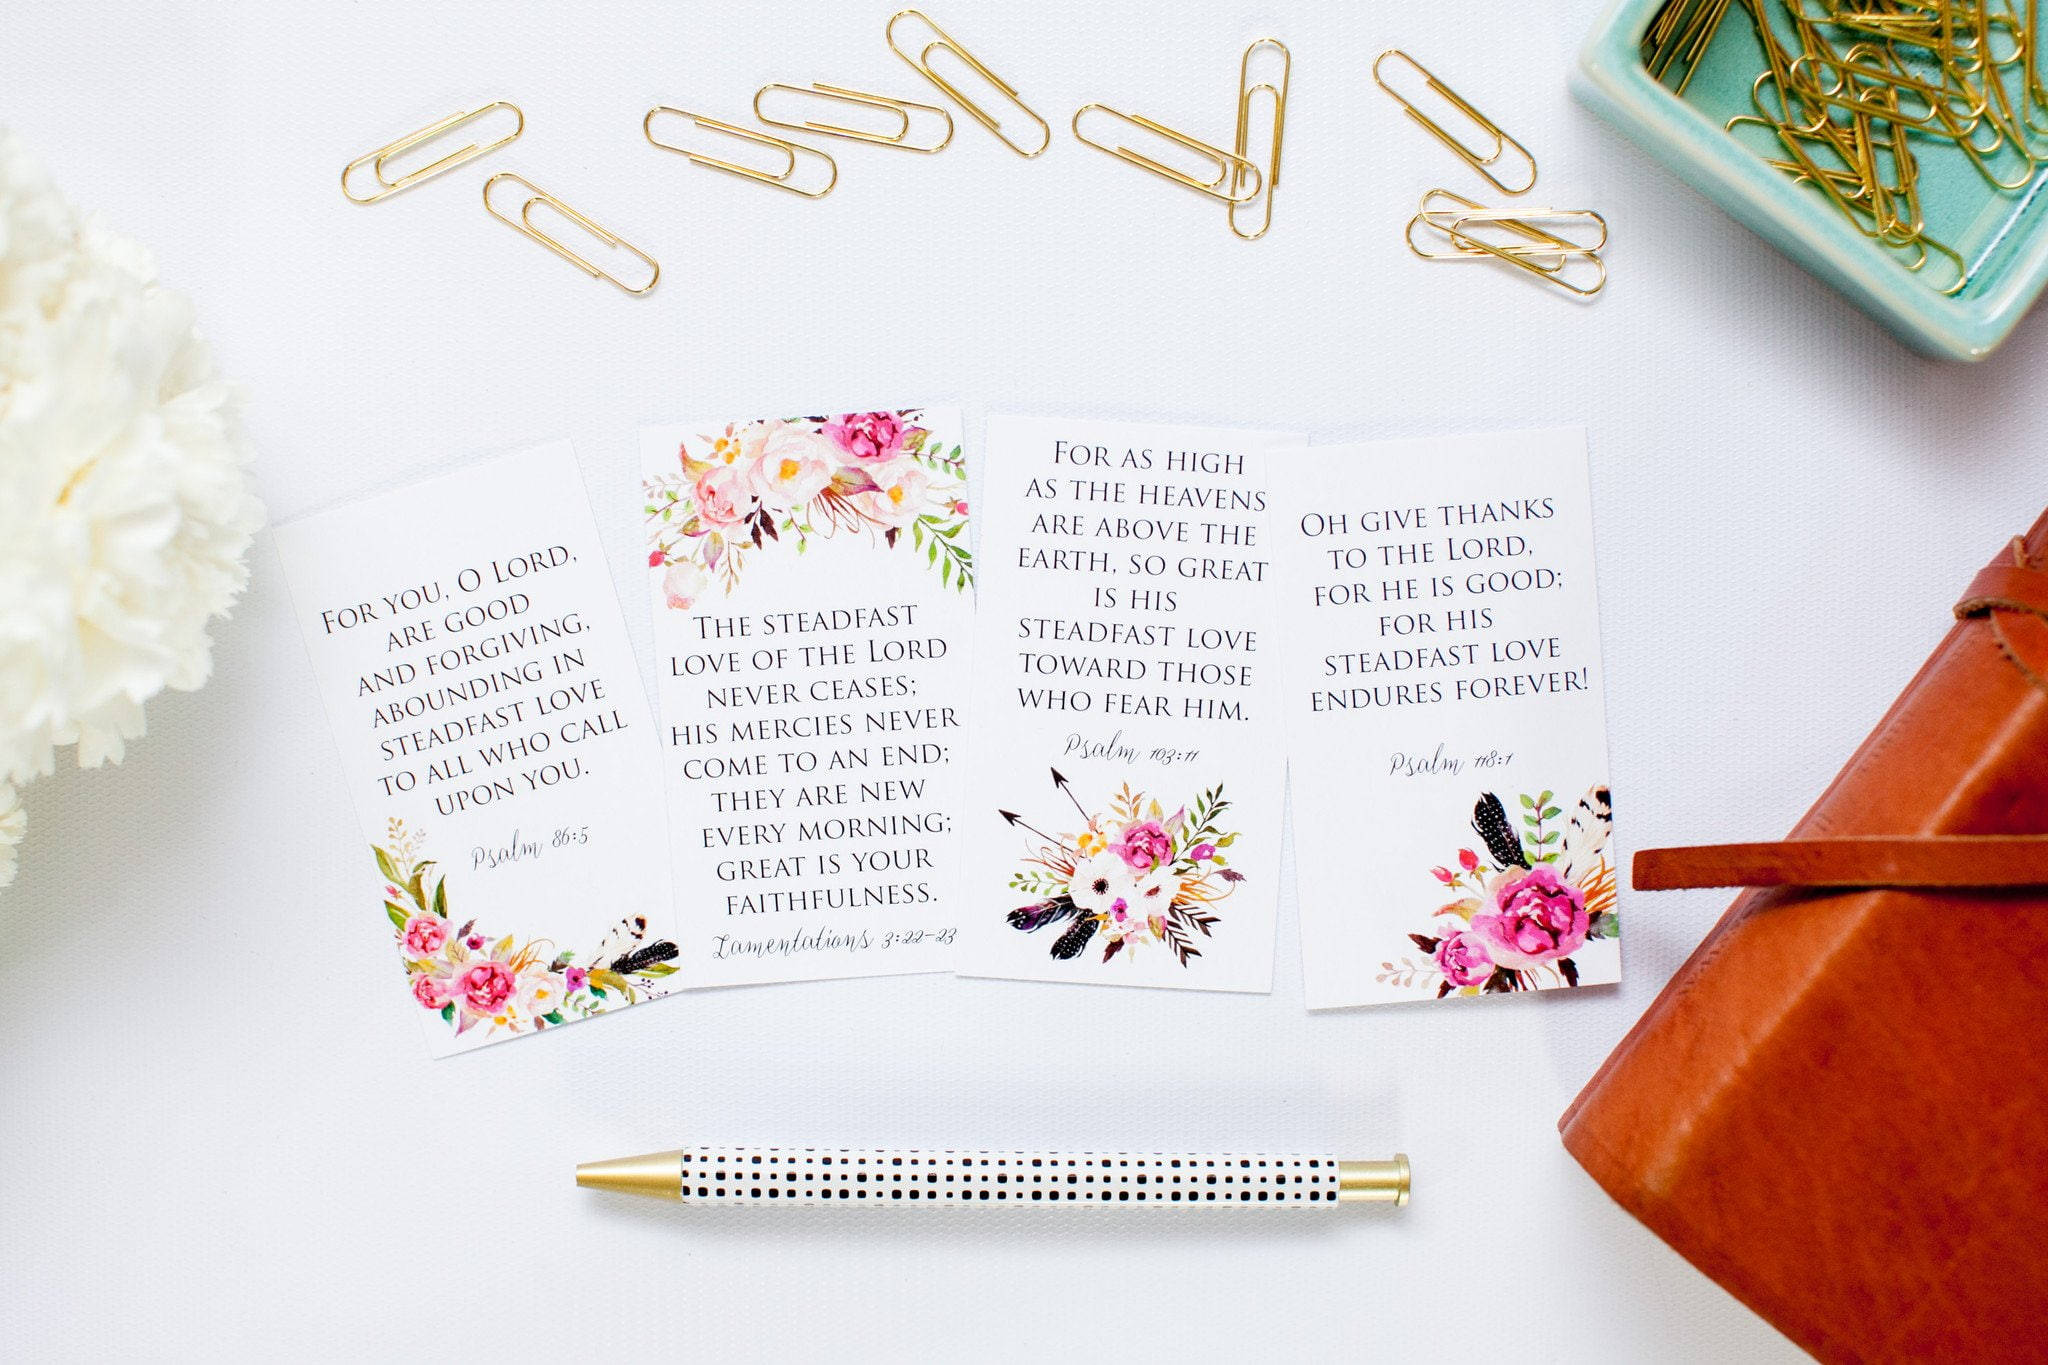 FOR YOU, O LORD,
ARE GOOD
AND FORGIVING,
ABOUNDING IN
STEADFAST LOVE
TO ALL WHO CALL
UPON YOU.
Psalm 86:5
THE STEADFAST
LOVE OF THE LORD
NEVER CEASES;
HIS MERCIES NEVER
COME TO AN END;
THEY ARE NEW
EVERY MORNING;
GREAT IS YOUR
FAITHFULNESS.
Lamentations 3:22-23
FOR AS HIGH
AS THE HEAVENS
ARE ABOVE THE
EARTH, SO GREAT
IS HIS
STEADFAST LOVE
TOWARD THOSE
WHO FEAR HIM.
Psalm 103:11
OH GIVE THANKS
TO THE LORD,
FOR HE IS GOOD;
FOR HIS
STEADFAST LOVE
ENDURES FOREVER!
Psalm 118:1